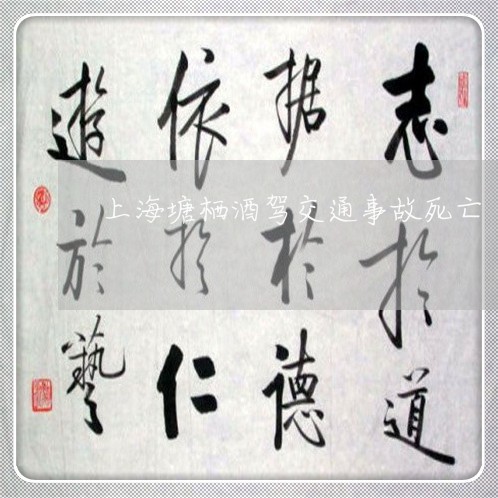 志於道
据於德
依於仁
遊於藝
上海塘栖酒驾交通事故死亡